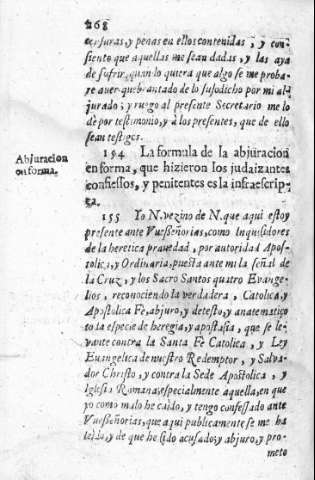 268
cersuras, y penas en ellos contenidas, y con-
siento que aquellas me sean dadas, y las aya
de sufrir, quando quiera que algo se me proba-
re aver quebrantado de lo susodicho por mi ab-
jurado; y ruego al presente Secretario me lo
dè por testimonio, y à los presentes, que de ello
sean testigos.
Abjuracion
en forma.
154 La formula de la abjuracion
en forma, que hizieron los judaizantes
confessos, y penitentes es la infraescrip-
ta.
155 Yo N. vezino de N. que aqui estoy
presente ante Vuesseñorias, como Inquisidores
de la heretica pravedad, por autoridad Apos-
tolica, y Ordinaria, puesta ante mi la señal de
la Cruz, y los Sacro Santos quatro Evange-
lios, reconociendo la verdadera, Catolica, y
Apostolica Fè, abjuro, y detesto, y anatematiço
to la especie de heregia, y apostasia, que se le-
vante contra la Santa Fè Catolica, y Ley
Euangelica de nuestro Redemptor, y Salva-
dor Christo, y contra la Sede Apostolica, y
Iglesia Romana, especialmente aquella, en que
yo como malo he caido, y tengo confessado ante
Vuesseñorias, que aqui publicamente se me ha
leido, y de que he sido acusado; y abjuro, y pro-
meto